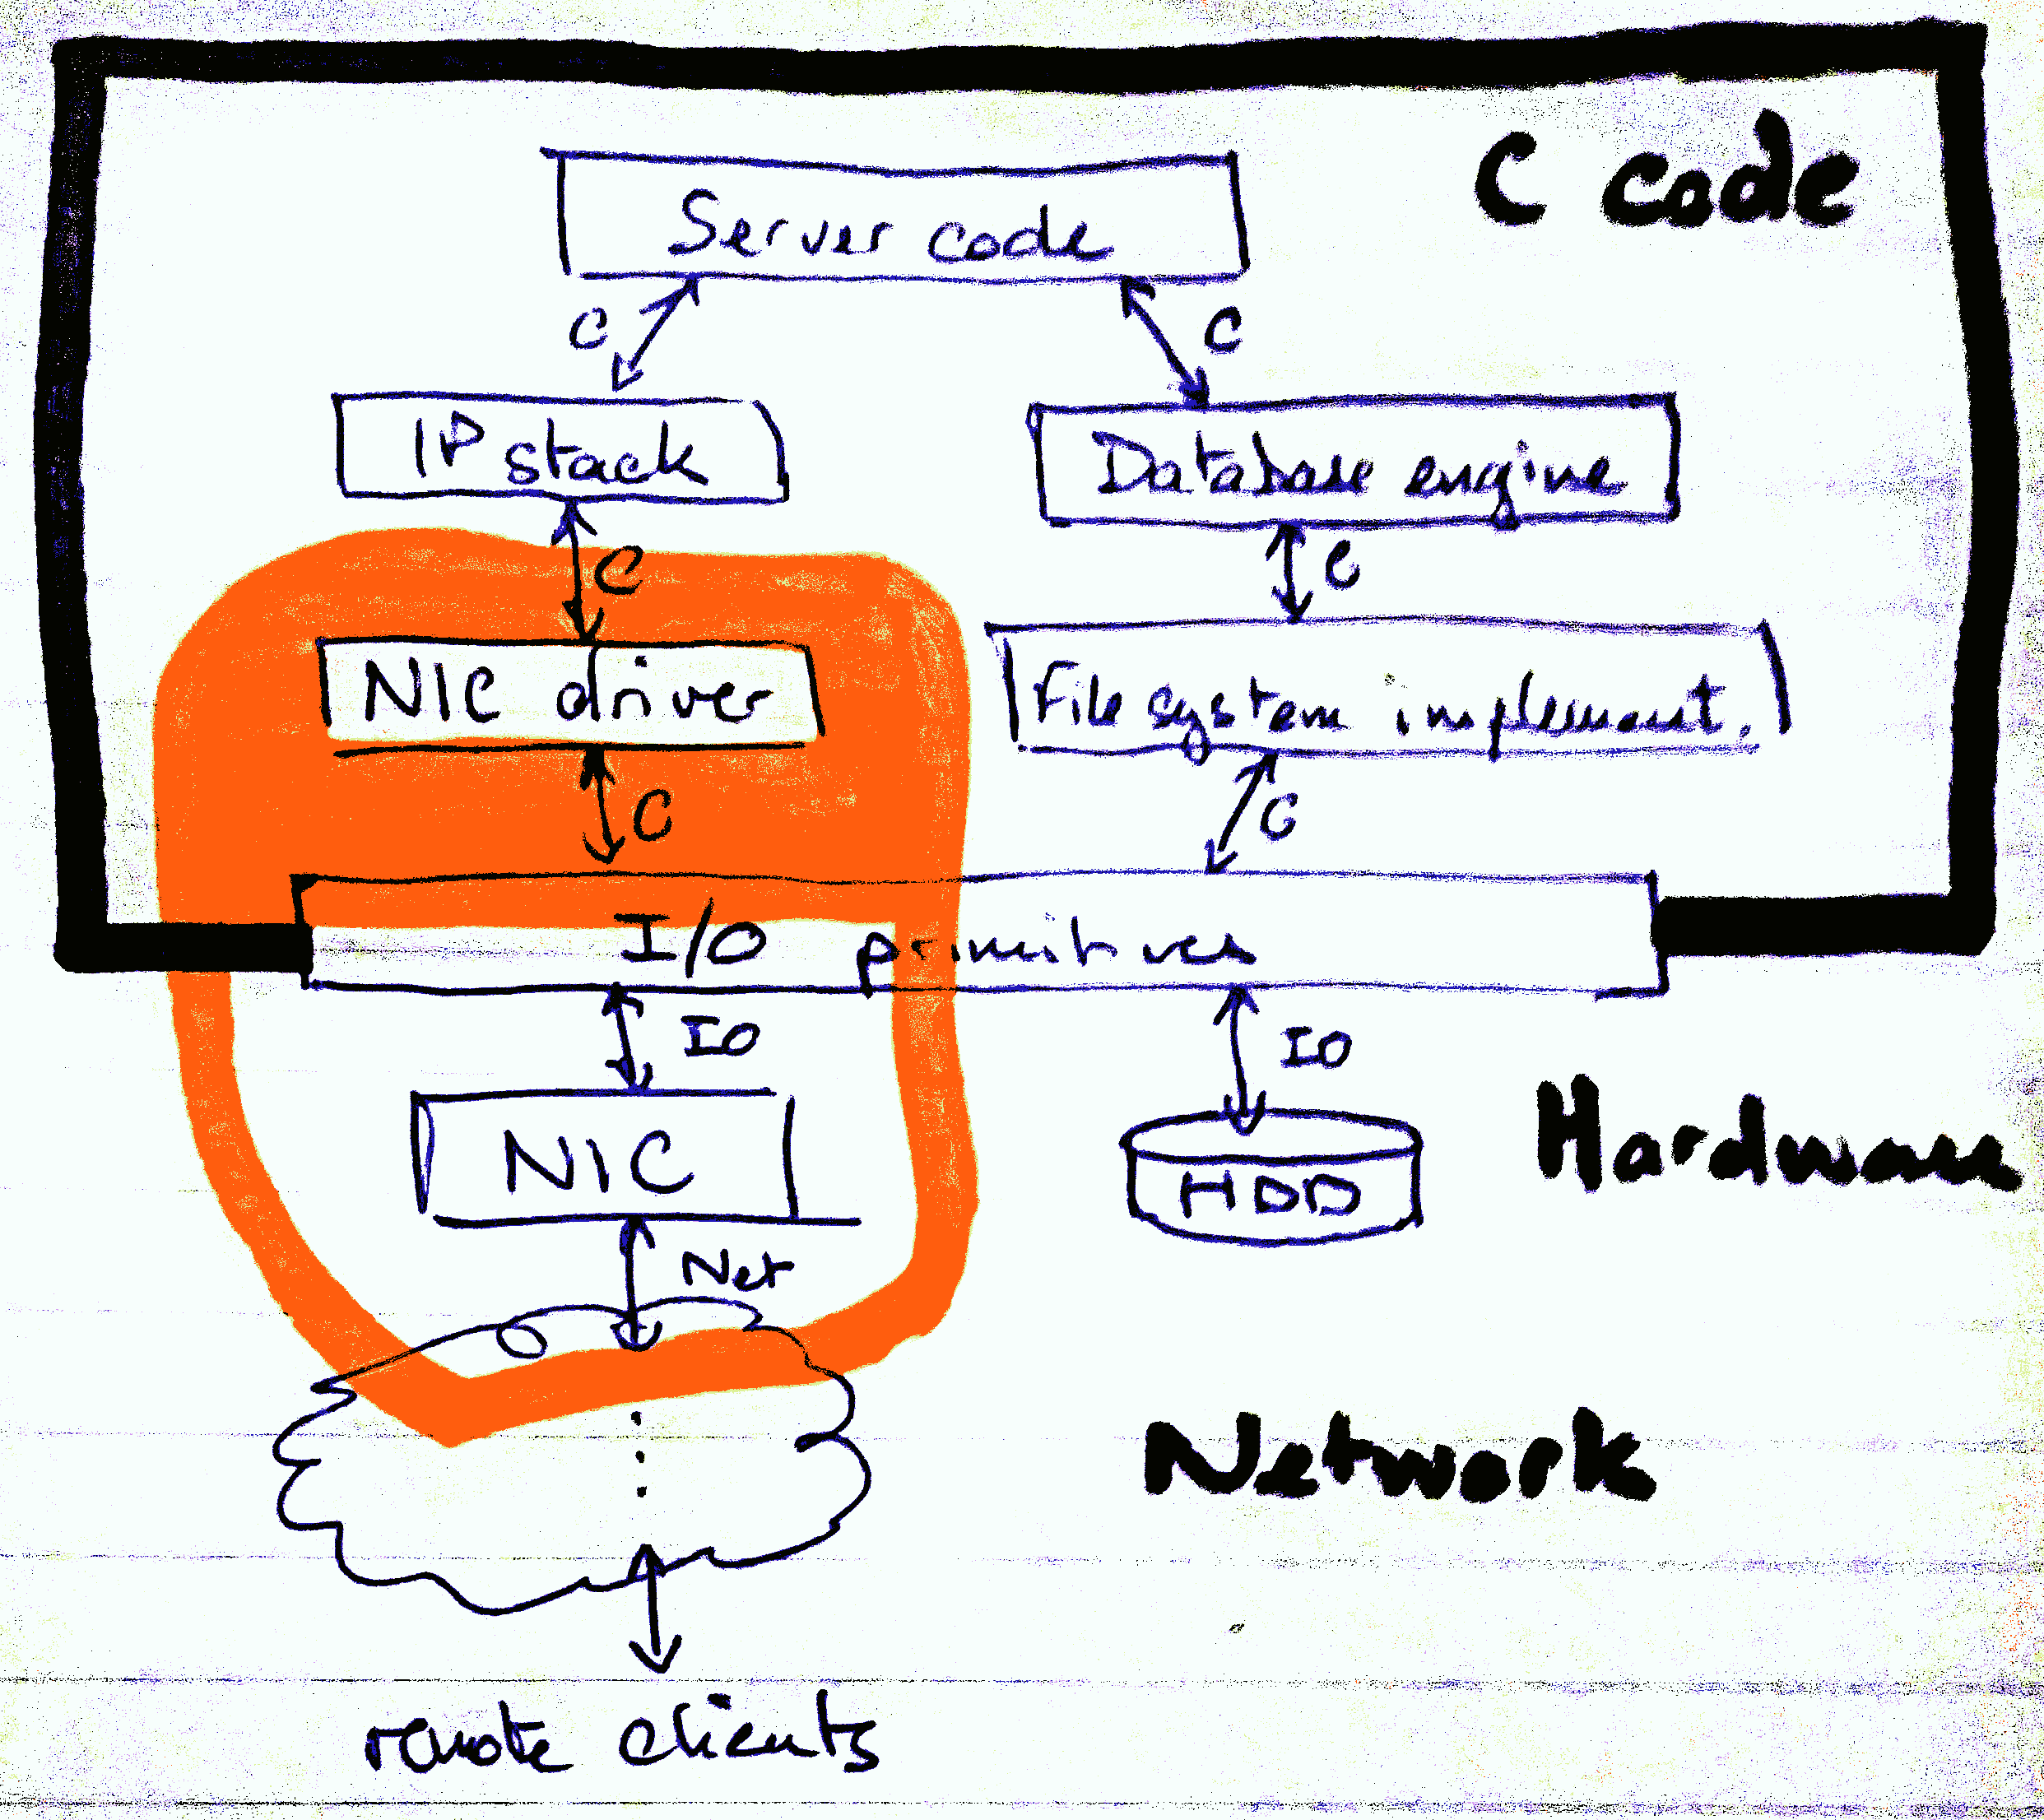 C code
Server code
C C
IP stack Database engine
C C
NIC driver File system implement.
C C
I/O primitives
IO IO
NIC HDD Hardware
Net
Network
remote clients